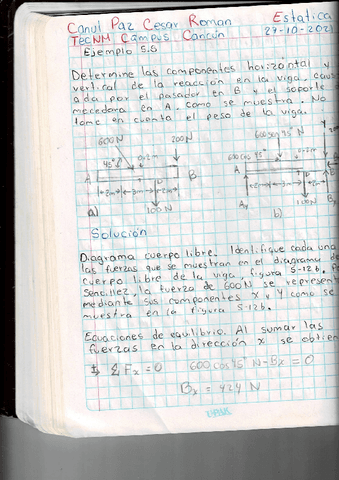 Canul Paz Cesar Roman Estatica
TecNM Campus Cancún 27-10-2021
Ejemplo 5.5
Determine las componentes horizontal y
vertical de la reacción en la viga, caus
ada por el pasador en B y el soporte
mecedora en A. como se muestra. No
tome en cuenta el peso de la viga.
600N 200N 600sen45°
45° 0.2m 600cos45° 0.2m
A D B A D
2m 3m 2m 2m 3m 2m
100N Ay 100N By
a) b)
Solución
Diagrama cuerpo libre. Identifique cada una
las fuerzas que se muestran en el diagrama de
cuerpo libre de la viga, figura 5-12b. Po
Sencillez, la fuerza de 600N se represen
mediante sus componentes x y y como se
muestra en la figura 5-12b.
Ecuaciones de equilibrio. Al sumar las
fuerzas en la dirección x se obtie
ΣFx=0 600cos45°N-Bx=0
Bx=424N